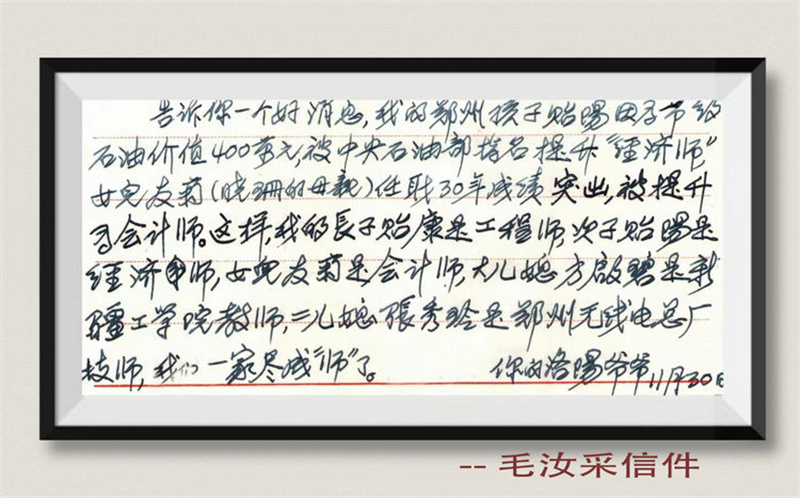 告诉你一个好消息,我的郑州孩子贻陽因为节约
石油价值400萬元,被中央石油部指名提升“經济师”
女兒友莉(晓珊的母親)任职30年成绩突出,被提升
为会计师。这样,我的長子贻康是工程师,次子贻陽是
经济师,女兒友莉是会计师,大儿媳方啟碧是新
疆工学院教师,二儿媳張秀玲是郑州无线电总厂
技师,我们一家尽成“师”了。
你的洛陽爷爷11月30日
--毛汝采信件